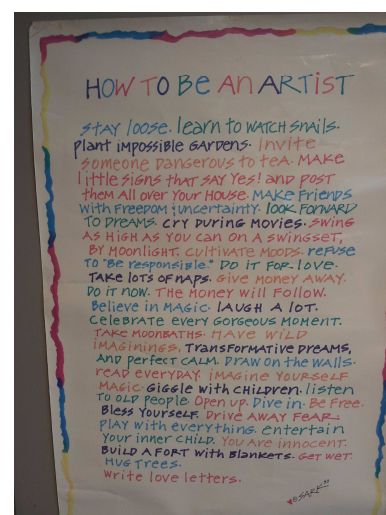 HOW TO BE AN ARTIST
STAY LOOSE. learn to WATCH SNAILS.
plant impossible GARDENS. Invite
someone DANGEROUS to TEA. MAKE
little SIGNS THAT SAY Yes! and POST
them All over YOUR HOUSE. MAKE FRIENDS
with FREEDOM & uncertainty. lOOK FORWARD
TO DREAMS. CRY DURING MOVIES. SWING
AS HIGH AS YOU CAN ON A SWINGSET,
BY MOONLIGHT. CULTIVATE MOODS. REFUSE
TO "BE RESPONSIBLE." DO IT FOR LOVE.
TAKE LOTS OF NAPS. GIVE MONEY AWAY.
DO IT NOW. THE MONEY WILL FOLLOW.
Believe in MAGIC. LAUGH A LOT.
CELEBRATE every GORGEOUS MOMENT.
TAKE MOONBATHS. HAVE WILD
IMAGININGS, TRANSFORMATIVE DREAMS,
AND perfect CALM. DRAW ON THE WALLS.
READ EVERYDAY. IMAGINE YOURSELF
MAGIC. GIGGLE with CHILDREN. listen
TO OLD PEOPLE. Open up. Dive in. Be Free.
Bless Yourself. DRIVE AWAY FEAR.
PLAY with everything. entertain
Your inner CHILD. You ARE INNOCENT.
BUILD A FORT with BLANKETS. GET WET.
HUG TREES.
Write love letters.
SARK